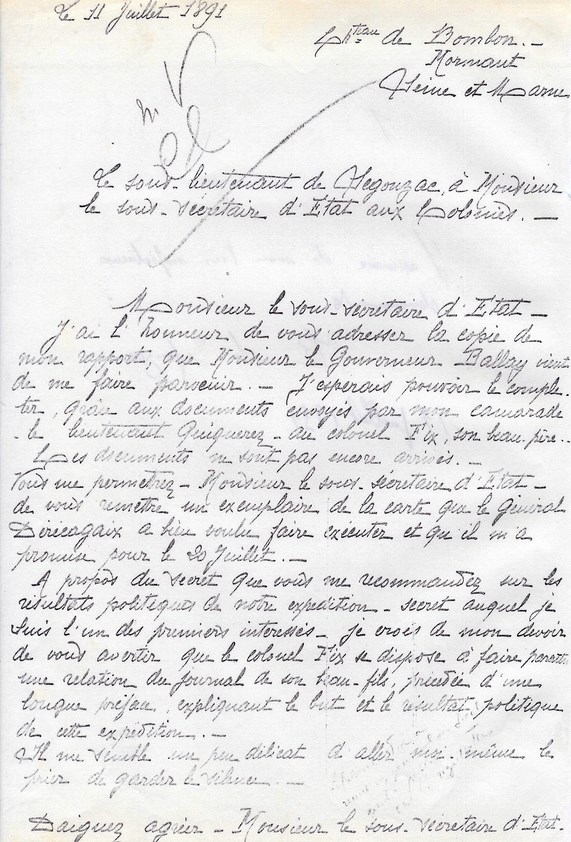 Le 11 Juillet 1891
Chteau de Bombon. -
Mormant
Seine et Marne
Le sous-lieutenant de Segonzac, à Monsieur
le sous-secrétaire d'Etat aux Colonies. -
Monsieur le sous-secrétaire d'Etat -
J'ai l'honneur de vous adresser la copie de
mon rapport, que Monsieur le Gouverneur Ballay vient
de me faire parvenir. - J'esperais pouvoir le comple-
ter, grâce aux documents envoyés par mon camarade
- le lieutenant Quiquerez - au colonel Fix, son beau-père. -
Les documents ne sont pas encore arrivés. -
Vous me permettrez - Monsieur le sous-secrétaire d'Etat -
de vous remettre un exemplaire de la carte que le général
Dérécagaix a bien voulu faire exécuter et qu'il m'a
promise pour le 20 Juillet. -
A propos du secret que vous me recommandez sur les
résultats politiques de notre expédition - secret auquel je
suis l'un des premiers interessés - je crois de mon devoir
de vous avertir que le colonel Fix se dispose à faire paraître
une relation du Journal de son beau-fils, précédée d'une
longue préface, expliquant le but et le résultat politique
de cette expédition. -
Il me semble un peu délicat d'aller moi-même le
prier de garder le silence. -
Daignez agréer - Monsieur le sous-secrétaire d'Etat -